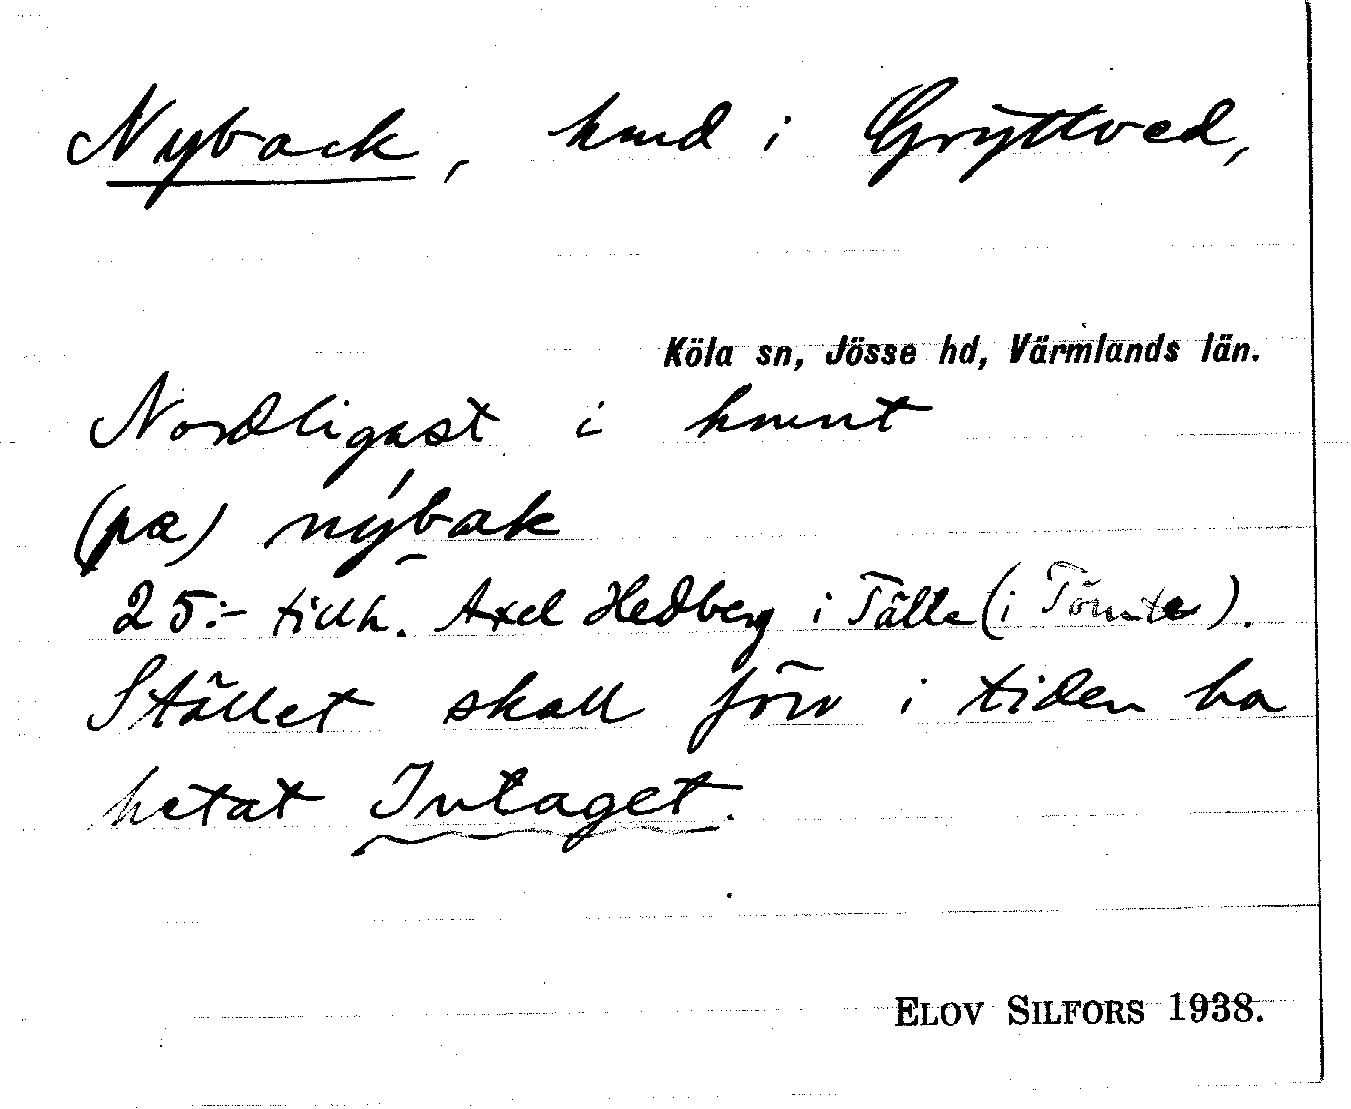 Nyback, hmd i Gryttved,
Köla sn, Jösse hd, Värmlands län.
Nordligast i hmnt
(pa) nýbak
25:- tillh. Axel Hedberg i Tälle (i Tömte).
Stället skall förr i tiden ha
hetat Intaget.
ELOV SILFORS 1938.